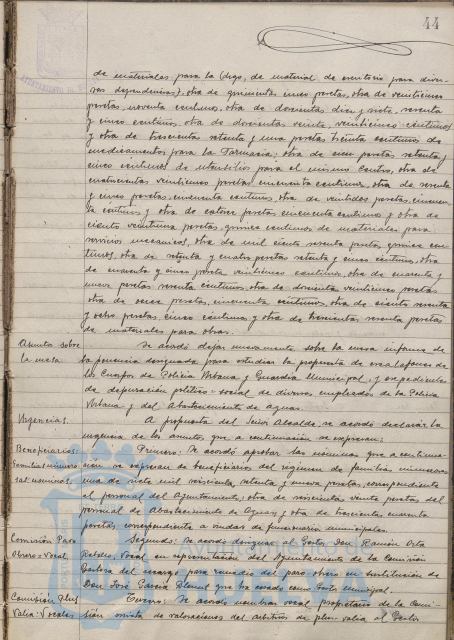 44
de materiales para la (digo, de material de escritorio para diver-
sas dependencias), otra de quinientas cinco pesetas, otra de veinticinco
pesetas, noventa céntimos, otra de doscientas diez y siete, setenta
y cinco céntimos, otra de doscientas veinte, veinticinco céntimos
y otra de trescientas setenta y una pesetas treinta céntimos de
medicamentos para la Farmacia; otra de once pesetas, setenta y
cinco céntimos de utensilios para el mismo Centro, otra de
cuatrocientas veinticinco pesetas, cincuenta céntimos, otra de setenta
y cinco pesetas, cincuenta céntimos, otra de veintidós pesetas, cincuen-
ta céntimos y otra de catorce pesetas cincuenta céntimos y otra de
ciento veintiuna pesetas, quince céntimos de materiales para
servicios mecánicos, otra de mil ciento setenta pesetas, quince cén-
timos, otra de setenta y cuatro pesetas setenta y cinco céntimos, otra
de cuarenta y cinco pesetas veinticinco céntimos, otra de cuarenta y
nueve pesetas setenta céntimos, otra de doscientas veinticinco pesetas
otra de pesetas, cincuenta céntimos, otra de ciento setenta
y ocho pesetas, cinco céntimos y otra de trescientas setenta pesetas
de materiales para obras.
Asuntos sobre
la mesa
Se acordó dejar nuevamente sobre la mesa informe de
la ponencia designada para estudiar la propuesta de escalafones de
los Cuerpos de Policía Urbana y Guardia Municipal, y expedientes
de depuración político-social de diversos empleados de la Policía
Urbana y del Abastecimiento de aguas.
Urgencias.
A propuesta del Señor Alcalde, se acordó declarar la
urgencia de los asuntos que a continuación se expresan:
Beneficiarios:
Familias numero
sas: nóminas.
Primero: Se acordó aprobar las nóminas que a continua-
ción se expresan de beneficiarios del régimen de familias numerosas
una de siete mil seiscientas setenta y nueve pesetas, correspondiente
al personal del Ayuntamiento; otra de seiscientas veinte pesetas del
personal de Abastecimiento de Aguas y otra de trescientas cuarenta
pesetas correspondiente a viudas de funcionarios municipales.
Comisión Paro
Obrero = Vocal.
Segundo: Se acordó designar al Gestor Don Ramón Orta
Rebollo, Vocal en representación del Ayuntamiento de la Comisión
Gestora del recargo para remedio del paro obrero en sustitución de
Don José García que ha cesado como Gestor Municipal.
Comisión Plus
Valía: Vocales
Tercero: Se acordó nombrar vocal propietario de la Comi-
sión mixta de valoraciones del arbitrio de plus valía al Gestor